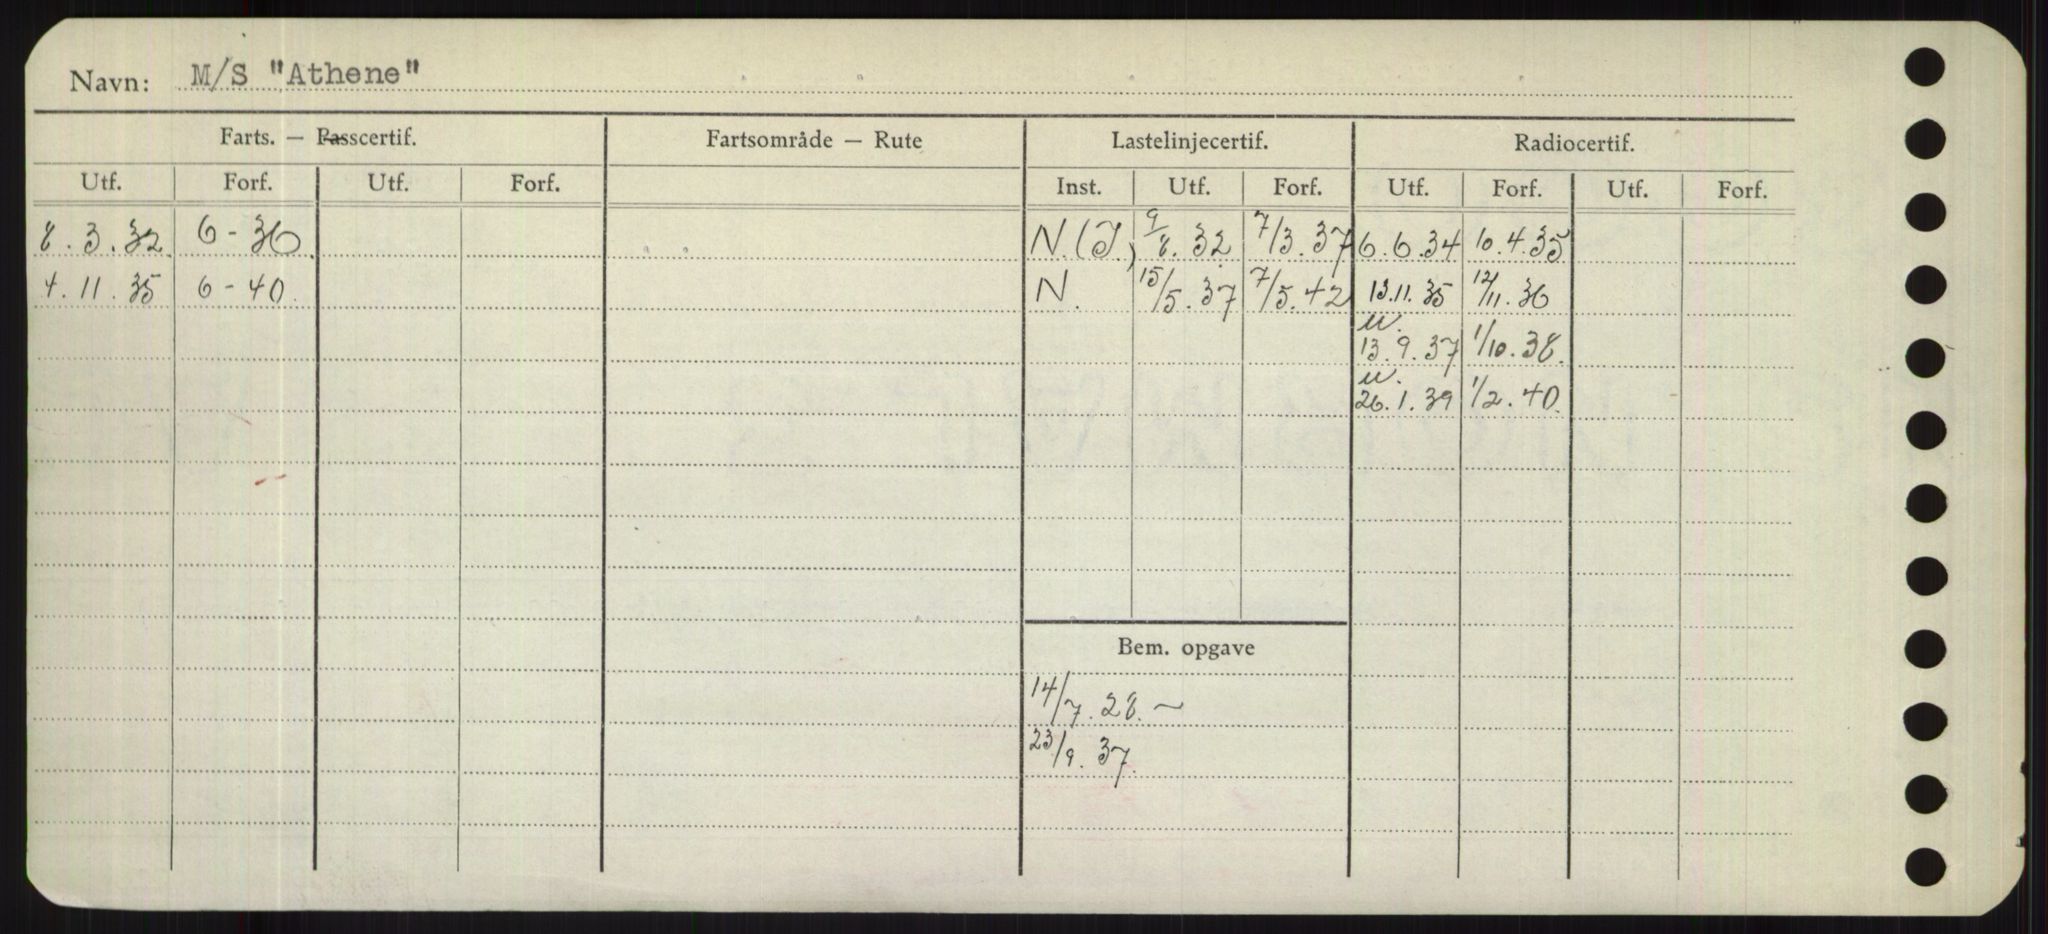 Navn: M/S "Athene"
Farts. — Passcertif. Fartsområde — Rute Lastelinjecertif. Radiocertif.
Utf. Forf. Utf. Forf. Inst. Utf. Forf. Utf. Forf. Utf. Forf.
8.3.32 6-36 N.(I.) 9/8.32 7/3.37 6.6.34 10.4.35
4.11.35 6-40. N. 15/5.37 7/5.42 13.11.35 12/11.36
u.
13.9.37 1/10.38.
u.
26.1.39 1/2.40.
Bem. opgave
14/7.28.~
23/9.37.